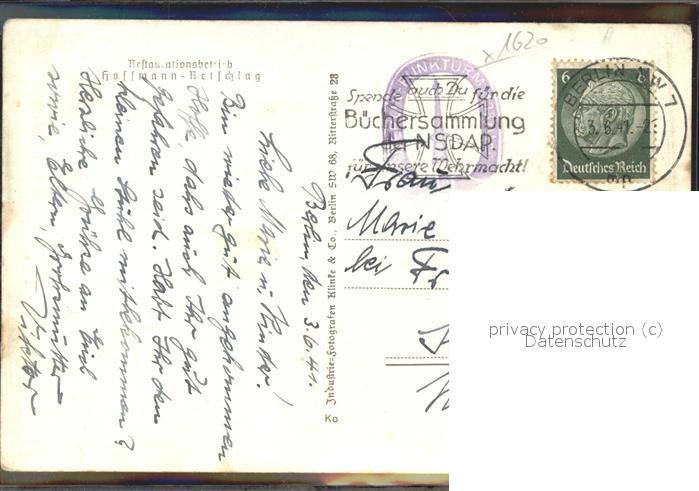 Restaurationsbetrieb
Hoffmann-Retschlag
x1620
FUNKTURM
Spende auch Du für die
Büchersammlung
der NSDAP.
für unsere Wehrmacht!
BERLIN NW 7
3.6.41.-2
6
Deutsches Reich
Frau
Marie
bei Fr
Industrie-Fotografen Klinke & Co., Berlin SW 68, Ritterstraße 23
Ko
Berlin, den 3.6.41.
Liebe Marie u. Kinder!
Bin wieder gut angekommen
Hoffe, dass auch Ihr gut
gefahren seid. Habt Ihr den
kleinen Stuhl mitbekommen?
Herzliche Grüße an Euch
sowie, Eltern, Großmutter
privacy protection (c)
Datenschutz